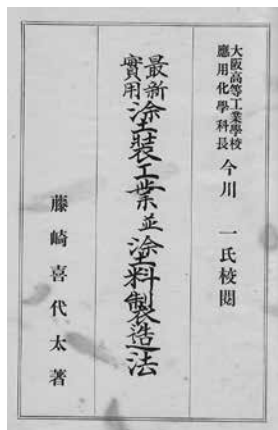 大阪高等工業學校
應用化學科長
今川 一氏校閲
最新
實用
塗裝工業並塗料製造法
藤崎喜代太著